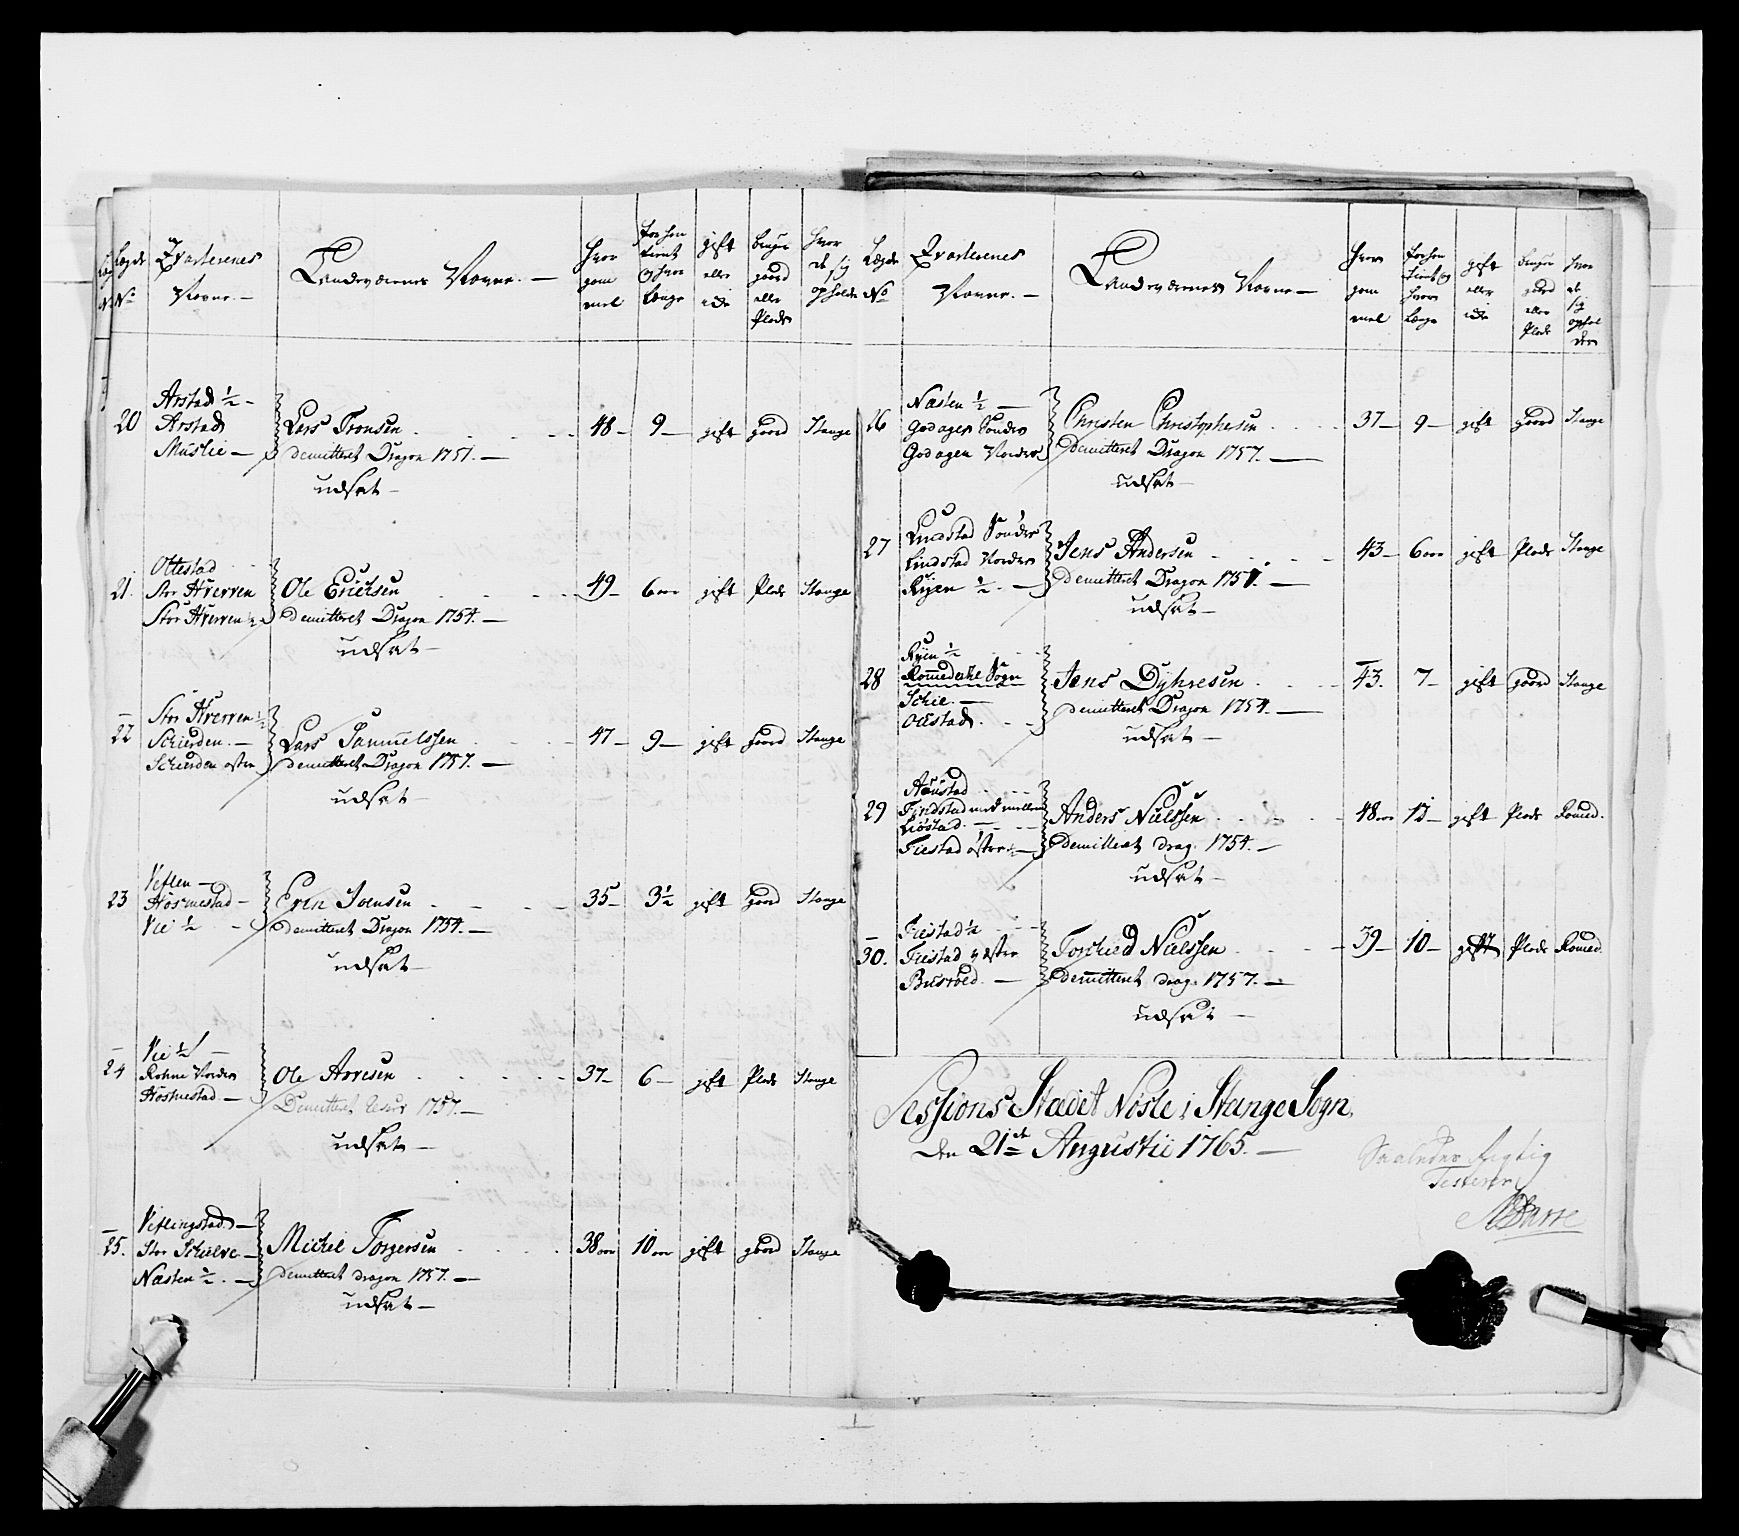 Lægds No
Qvarterenes Navne. —
Landeværnes Navne. —
Hvor gam mel
forhen tient og hvor Længe
gift eller icke
bruger gaard eller Plads
hvor de sig opholde
20
Arstad ½ —
Arstad
Muslie —
Lars Tronsen
Demitteret Dragon 1757. —
udsat —
48 — 9 — gift gaard Stange
21.
Ottestad
Stor Hverven
Stor Hverven ½
Ole Erichsen
Demitteret Dragon 1754. —
udsat —
49 — 6 gift Plads Stange
22
Stor Hverven ½
Schierden. —
Schierden østre
Lars Samuelssen
Demitteret Dragon 1757. —
udsat —
47 — 9 — gift gaard Stange
23
Veflen —
Hosmestad —
Vie ½ —
Even Ivensen
Demitteret Dragon 1754. —
udsat —
35 — 3½ gift gaard Stange
24
Vie ½ —
Rohne Norder
Hosmestad —
Ole Arvesen
Demitteret 1757. —
udsat —
37 — 6 — gift Plads Stange
25.
Veflingstad —
Stor Schelve —
Næsten ½. —
Michel Torgersen
Demitteret dragon 1757. —
udsat —
38 10 gift gaard Stange
Lægds No
Qvarterenes Navne. —
Landeværnes Navne —
Hvor gam mel
forhen tient og hvor Længe
gift eller icke
bruger gaard eller Plads
hvor de sig ophol der
26
Næsten ½ —
Godager Sønder
Godager Norder
Christen Christophersen
Demitteret Dragon 1757. —
udsat —
37 — 9 — gift gaard Stange
27
Lindstad Sønder
Lindstad Norder
Ryen ½. —
Jens Andersen
Demitteret Dragon 1757. —
udsat —
43 — 6 gift Plads Stange
28
Ryen ½
Romedahls Sogn
Schie. —
Olestad.
Jens Dyhresen
Demitteret Dragon 1754. —
udsat —
43. 7 — gift gaard Stange
29
Findstad med mellem
Liøstad. —
Fiestad østre ½
Anders Nielssen
Demitteret drag. 1754. —
udsat —
48 gift Plads Romed.
30.
Fiestad ½
Fiestad
Busroed. —
Torchied Nielssen
Demitteret drag. 1757. —
udsat —
39 — 10 — gift Plads Romed.
Sessions Stædet Nøsle i Stange Sogn,
den 21de Augustii 1765. —
Saaledes Rigtig
Testerer